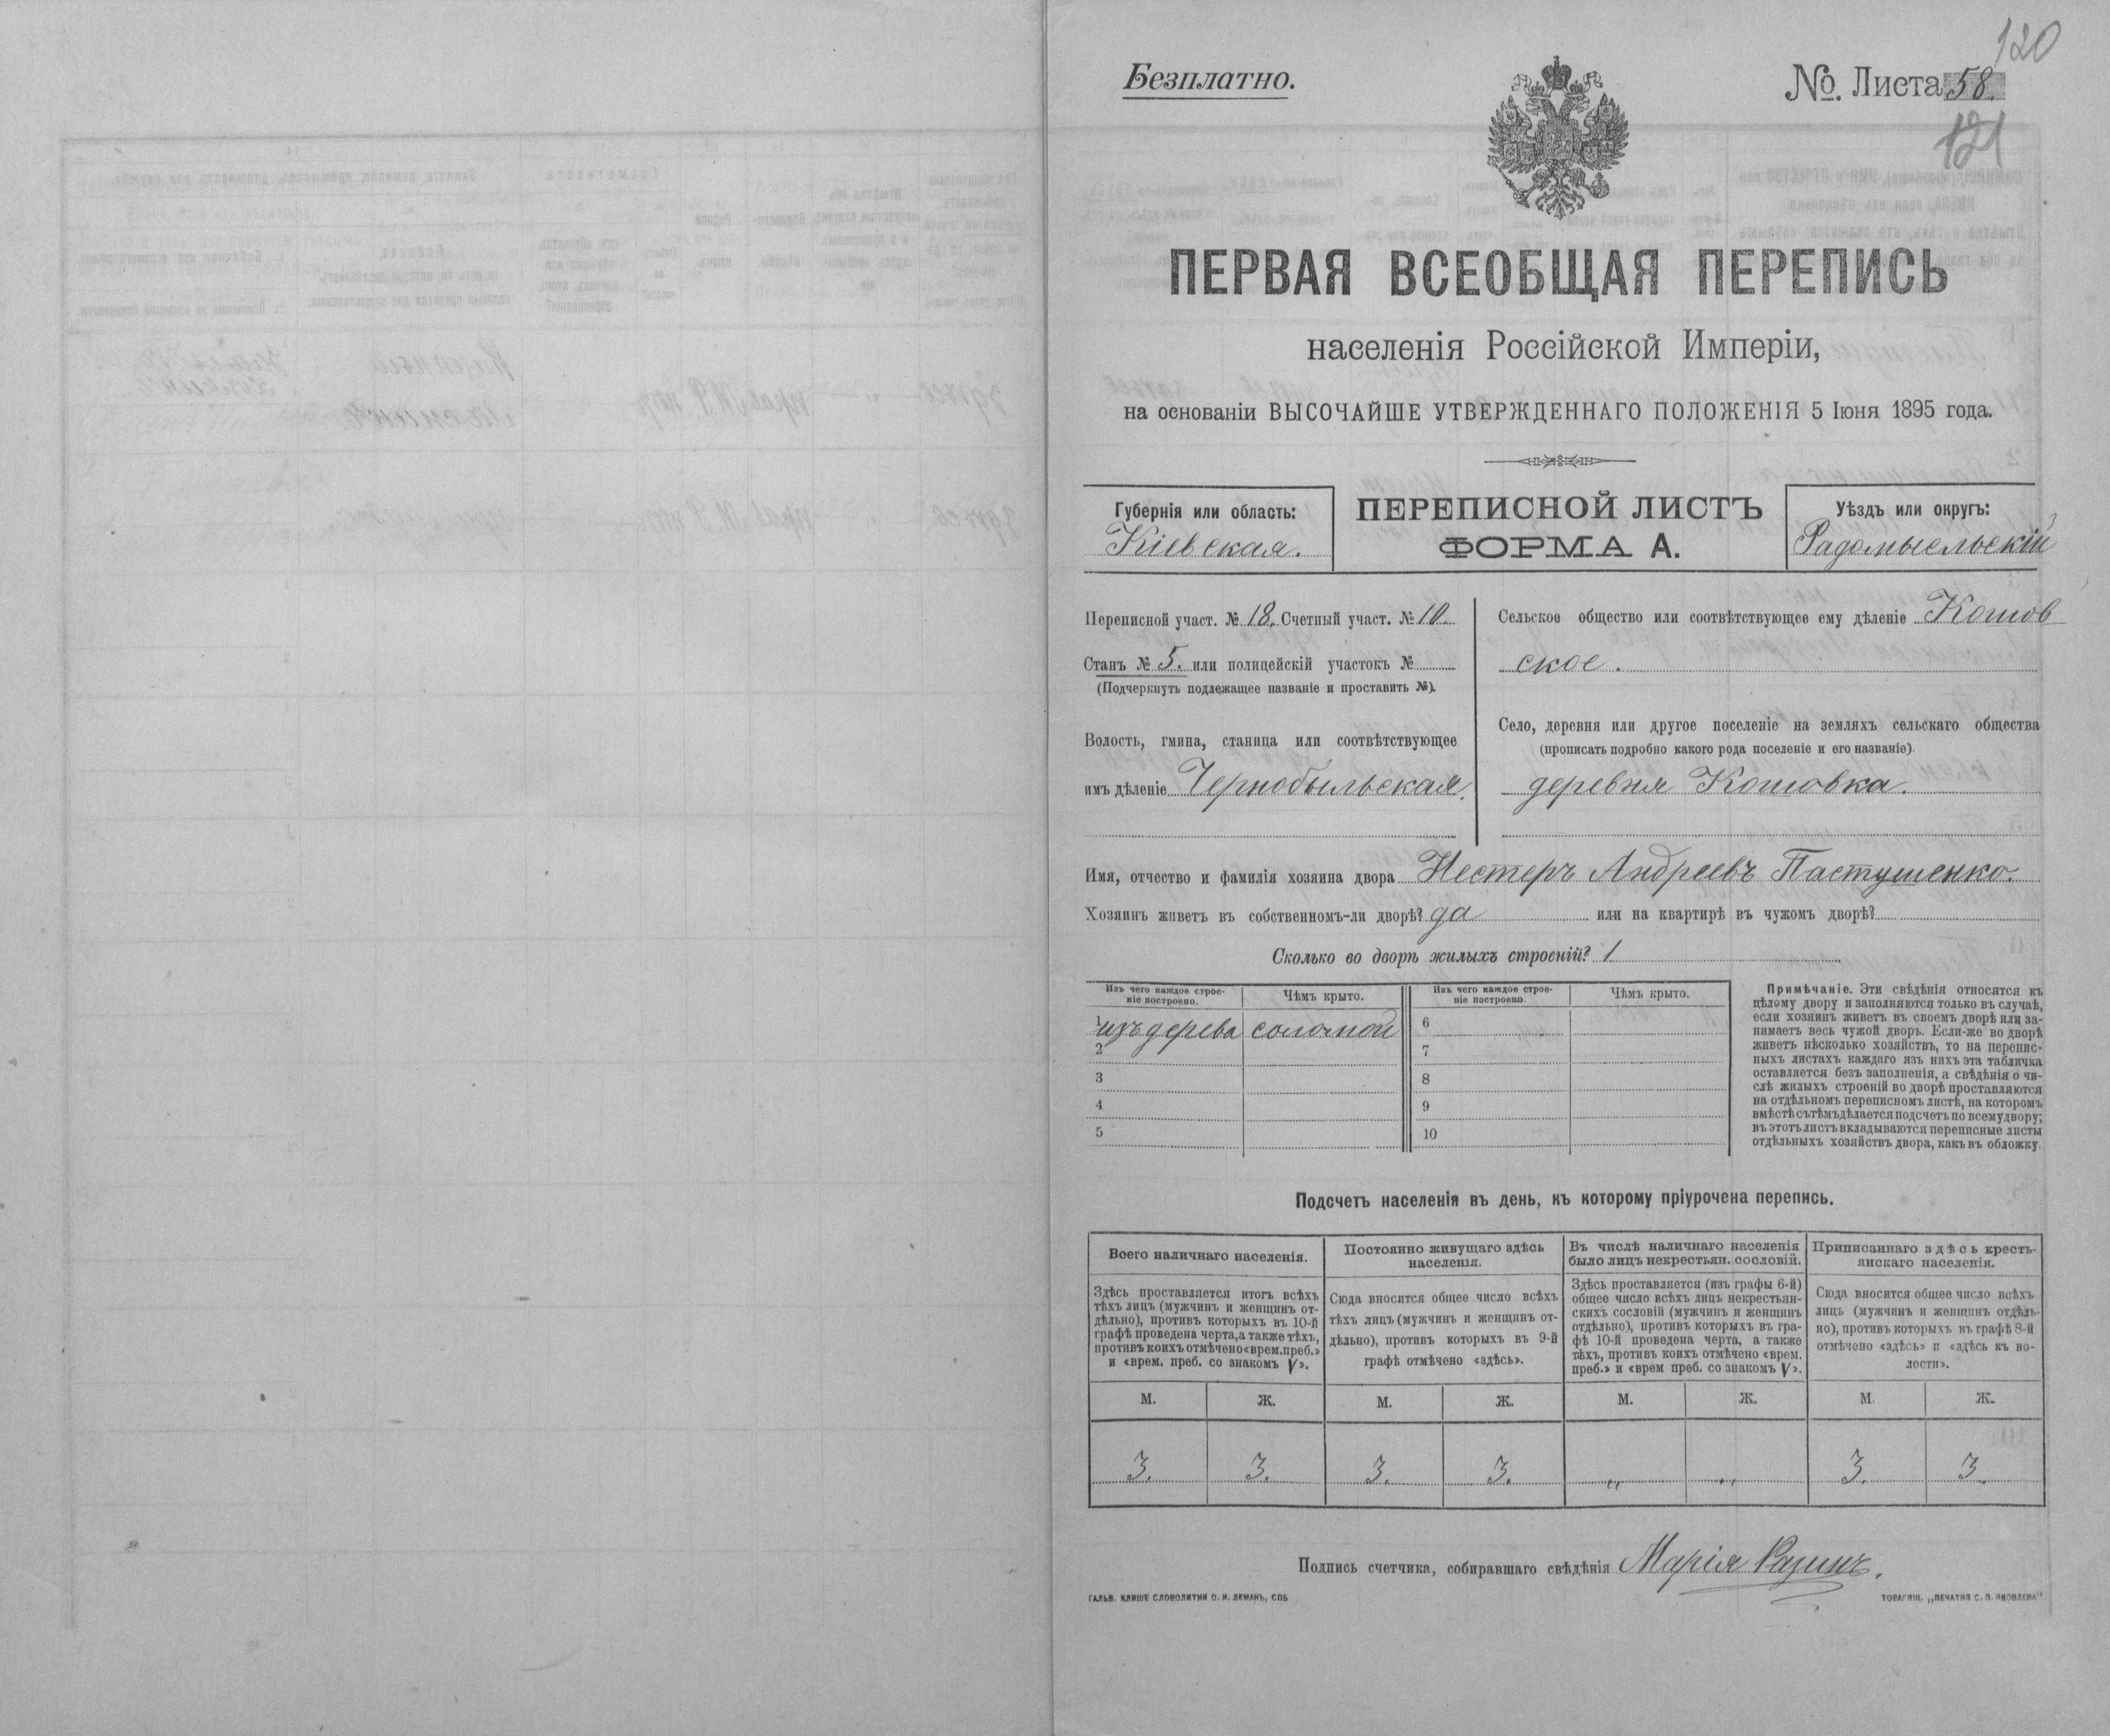 120
Безплатно.
№ Листа 58.
121
ПЕРВАЯ ВСЕОБЩАЯ ПЕРЕПИСЬ
населенія Россійской Имперіи,
на основаніи ВЫСОЧАЙШЕ УТВЕРЖДЕННАГО ПОЛОЖЕНІЯ 5 Іюня 1895 года.
Губернія или область:
Кіевская.
ПЕРЕПИСНОЙ ЛИСТЪ
ФОРМА А.
Уѣздъ или округъ:
Радомысльскій
Переписной участ. № 18. Счетный участ. № 10.
Станъ № 5. или полицейскій участокъ №
(Подчеркнуть подлежащее названіе и проставить №).
Волость, гмина, станица или соотвѣтствующее
имъ дѣленіе Чернобыльская.
Сельское общество или соотвѣтствующее ему дѣленіе Котов
ское.
Село, деревня или другое поселеніе на земляхъ сельскаго общества
(прописать подробно какого рода поселеніе и его названіе)
деревня Котовка.
Имя, отчество и фамилія хозяина двора Нестеръ Андреевъ Пастушенко.
Хозяинъ живетъ въ собственномъ-ли дворѣ? да или на квартирѣ въ чужомъ дворѣ?
Сколько во дворѣ жилыхъ строеній? 1
Изъ чего каждое строе-
ніе построено.
Чѣмъ крыто.
Изъ чего каждое строе-
ніе построено.
Чѣмъ крыто.
1 изъ дерева соломой 6
2 7
3 8
4 9
5 10
Примѣчаніе. Эти свѣдѣнія относятся къ
цѣлому двору и заполняются только въ случаѣ,
если хозяинъ живетъ въ своемъ дворѣ или за-
нимаетъ весь чужой дворъ. Если-же во дворѣ
живетъ нѣсколько хозяйствъ, то на перепис-
ныхъ листахъ каждаго изъ нихъ эта табличка
оставляется безъ заполненія, а свѣдѣнія о чи-
слѣ жилыхъ строеній во дворѣ проставляются
на отдѣльномъ переписномъ листѣ, на которомъ
вмѣстѣ съ тѣмъ дѣлается подсчетъ по всему двору;
въ этотъ листъ вкладываются переписные листы
отдѣльныхъ хозяйствъ двора, какъ въ обложку.
Подсчетъ населенія въ день, къ которому пріурочена перепись.
Всего наличнаго населенія.
Здѣсь проставляется итогъ всѣхъ
тѣхъ лицъ (мужчинъ и женщинъ от-
дѣльно), противъ которыхъ въ 10-й
графѣ проведена черта, а также тѣхъ,
противъ коихъ отмѣчено «врем. преб.»
и «врем. преб. со знакомъ V».
Постоянно живущаго здѣсь
населенія.
Сюда вносится общее число всѣхъ
тѣхъ лицъ (мужчинъ и женщинъ от-
дѣльно), противъ которыхъ въ 9-й
графѣ отмѣчено «здѣсь».
Въ числѣ наличнаго населенія
было лицъ некрестьян. сословій.
Здѣсь проставляется (изъ графы 6-й)
общее число всѣхъ лицъ некрестьян-
скихъ сословій (мужчинъ и женщинъ
отдѣльно), противъ которыхъ въ гра-
фѣ 10-й проведена черта, а также
тѣхъ, противъ коихъ отмѣчено «врем.
преб.» и «врем преб. со знакомъ V».
Приписаннаго здѣсь кресть-
янскаго населенія.
Сюда вносится общее число всѣхъ
лицъ (мужчинъ и женщинъ отдѣль-
но), противъ которыхъ въ графѣ 8-й
отмѣчено «здѣсь» и «здѣсь къ во-
лости».
М. Ж. М. Ж. М. Ж. М. Ж.
3. 3. 3. 3. „ „ 3. 3.
Подпись счетчика, собиравшаго свѣдѣнія Марія
ГАЛЬВ. КЛИШЕ СЛОВОЛИТНИ О. И. ЛЕМАНЪ, СПБ
ТОВАРИЩ. „ПЕЧАТНЯ С. П. ЯКОВЛЕВА"